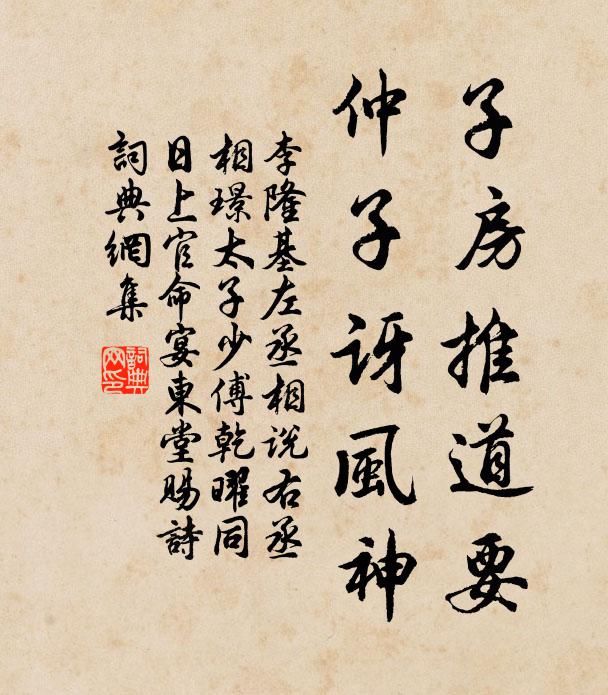 子房推道要
仲子訝風神
李隆基左丞相說右丞
相璟太子少傅乾曜同
日上官命宴東堂賜詩
詞典網集
詞典
网印